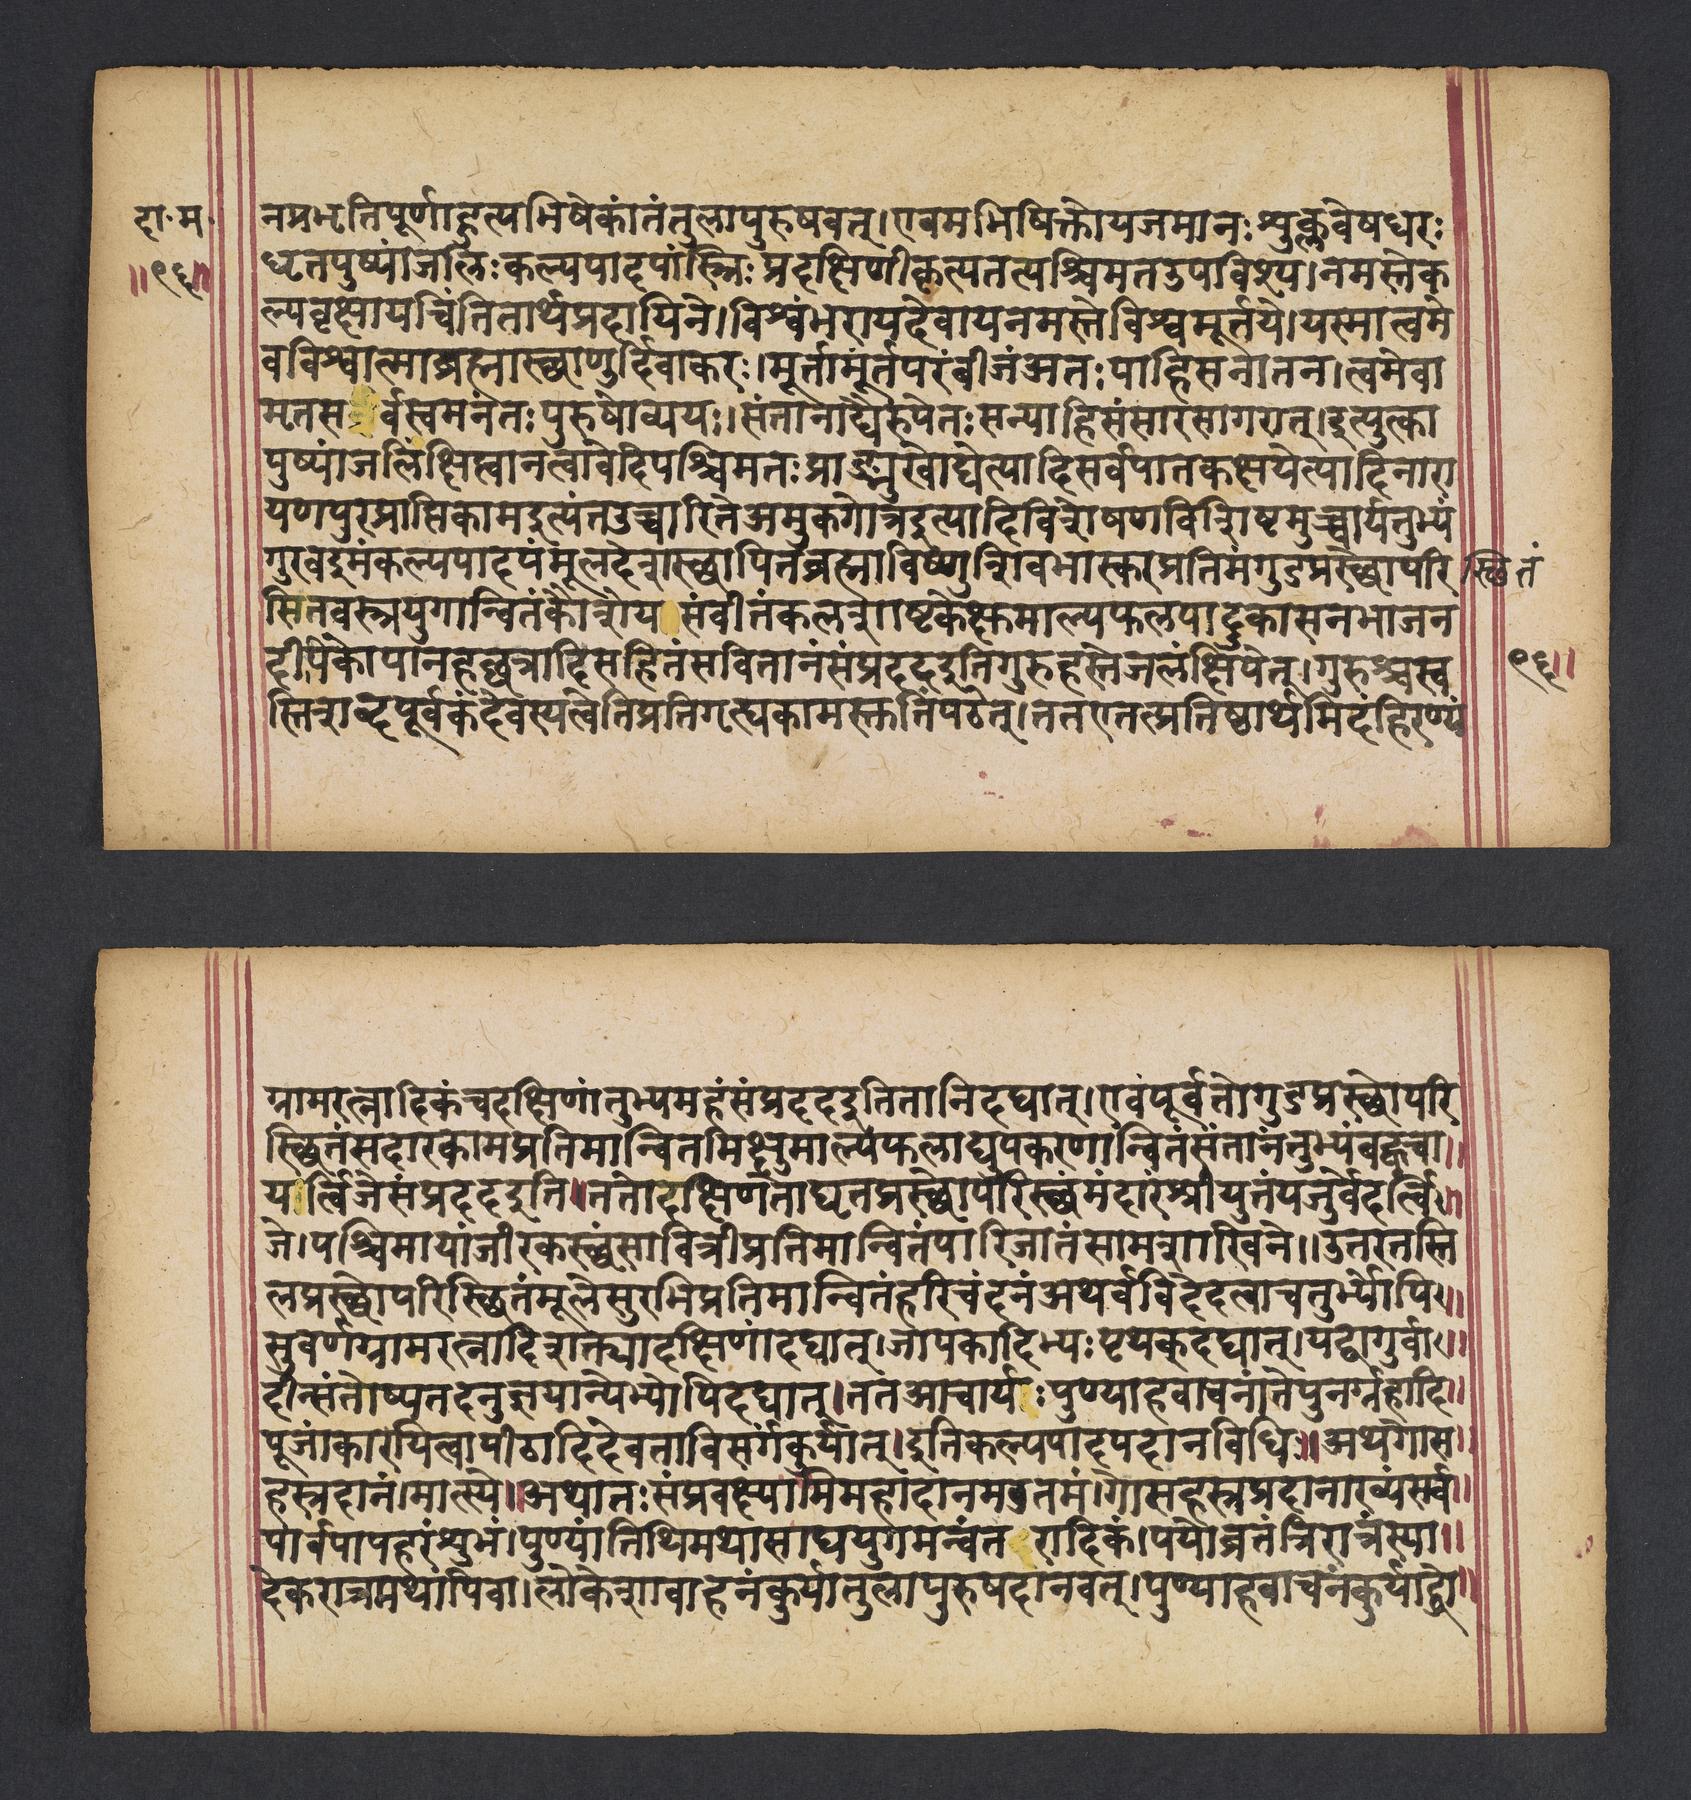 दा॰म॰
॥९६॥
नप्रभृतिपूर्णाहुत्यभिषेकांतंतुलापुरुषवत्।एवमभिषिक्तोयजमानःश्युक्लवेषधरः
धृतपुष्पांजलिःकल्पपादपांस्त्रिःप्रदक्षिणीकृत्यतत्पश्चिमतउपविश्य।नमस्तेक
ल्पवृक्षायचिंतितार्थप्रदायिने।विश्वंभरायदेवायनमस्तेविश्वमूर्तये।यस्मात्त्वमे
वविश्वात्माब्रह्मास्छाणुर्दिवाकरः।मूर्तामूर्तपरंबीजंअतःपाहिसनातन।त्वमेवा
मृतसर्वस्वमनंतःपुरुषोव्ययः।संतानाद्यैरुपेतःसन्पाहिसंसारसागरात्।इत्युत्का
पुष्पांजलिंक्षिप्त्वानत्वावेदिपश्चिमतःप्राङ्मुखोद्येत्यादिसर्वपातकक्षयेत्यादिनारा
यणपुरप्राप्तिकामइत्यंतउच्चारितेअमुकगोत्रइत्यादिविशेषणविशिष्टमुच्चार्यतुभ्यं
गुरवइमंकल्पपादपंमूलदेशस्छापितब्रह्माविष्णुशिवभास्करप्रतिमंगुडप्रस्छोपरि
स्छितं
सितवस्त्रयुगान्वितंकौशेयसंवीतंकलशाष्टकेक्षमाल्यफलपादुकासनभाजन
दीपिकोपानहछत्रादिसहितंसवितानंसंप्रददइतिगुरुहस्तेजलंक्षिपेत्।गुरुश्चस्व
९६॥
स्तिशब्दपूर्वकंदेवस्यत्वेतिप्रतिगृह्यकामस्क्ततिंपठेत्।ततएतत्प्रतिष्ठार्थमिदंहिरण्यं
ग्रामरत्नादिकंचदक्षिणांतुभ्यमहंसंप्रददइतितानिदद्यात्।एवंपूर्वतोगुडप्रस्छोपरि
स्छितंसदारकामप्रतिमान्वितमिक्षुमाल्यफलाद्युपकरणान्वितंसंतानंतुभ्यंबह्वृचा॥
यर्त्विजेसंप्रददइति॥ततोदक्षिणतोघृतप्रस्छोपरिस्छंमंदारंश्रीयुतंयजुर्वेदर्त्वि॥
जे।पश्चिमायांजीरकस्छंसावित्रीप्रतिमान्वितंपारिजातंसामशाखिने॥उत्तरतस्ति
लप्रस्छोपरिस्छितंमूलेसुरभिप्रतिमान्वितंहरिचंदनंअथर्वविदेदत्वाचतुर्भ्योपि॥
सुवर्णग्रामरत्नादिशक्त्यादक्षिणांदद्यात्।जापकादिभ्यःपृथक्दद्यात्।यद्वागुर्वा॥
दीन्संतोष्यतदनुज्ञयान्येभ्योपिदद्यात्।ततआचार्यःपुण्याहवाचनांतेपुनर्ग्रहादि॥
पूजांकारयित्वापीठादिदेवताविसर्गंकुर्यात्।इतिकल्पपादपदानविधिः॥अथगोस॥
हस्त्रदानं।मात्स्ये॥अथातःसंप्रवक्ष्यामिमहादानमनुतमं।गोसहस्त्रप्रदानाख्यंसर्व॥
पापहरंश्युभं।पुण्यांतिथिमथासाद्ययुगमन्वंतरादिकं।पयोव्रतंत्रिरात्रंस्या॥
देकरात्रमथापिवा।लोकेशावाहनंकुर्यात्तुलापुरुषदानवत्।पुण्याहवाचनंकुर्याद्धो॥